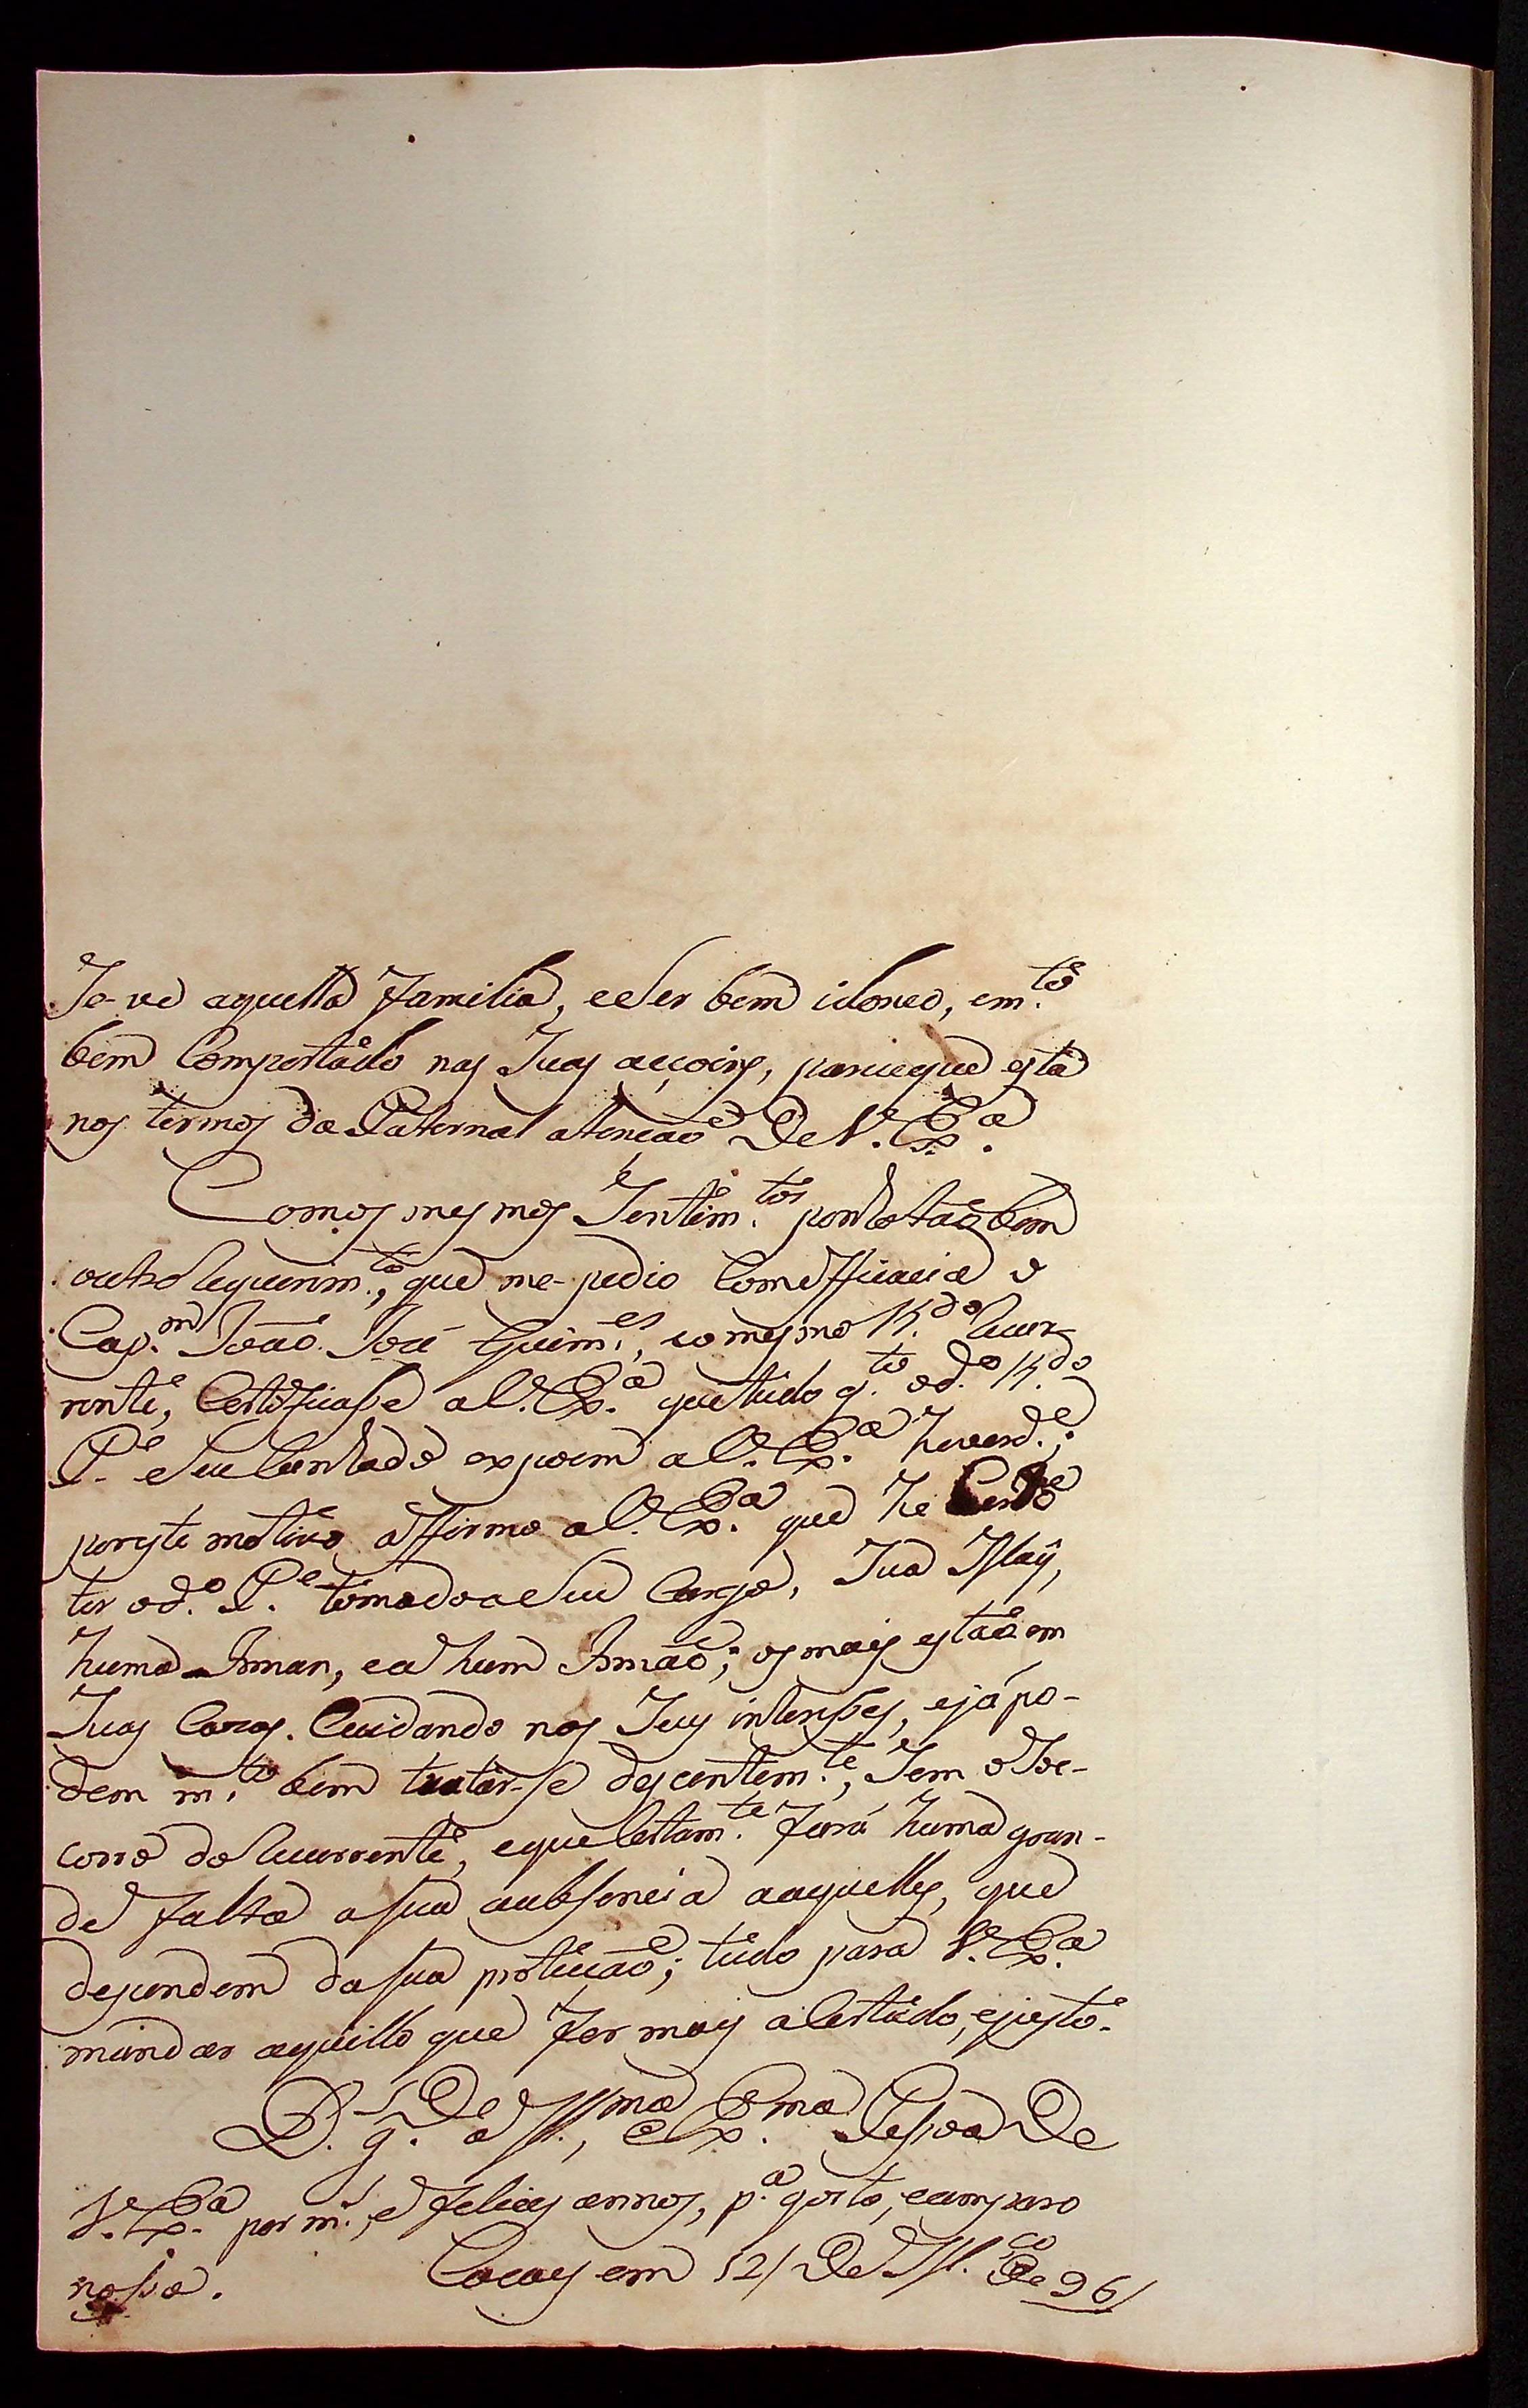 Se-ve aquella familia, e ser bem idoneo, e m.to
bem Comportado nas Suas açcoins, pareseque está
nos termos da Paternal atenção De V. Ex.a
Comos mesmos Sentim.tos ponho taõbem
outro Requerim.to, que me-pedio Comefficacia o
Cap.m Joaõ José Guim.es, eomesmo R.do Recor-
rente, Certeficasse a V. Ex.a que tudo q.to o d.o R.do
P.e e seu Cunhado expoem a V. Ex.a he verd.e;
poreste motivo affirmo a V. Ex.a que he Certo
ter o d.o P.e tomado a seu Cargo, Sua May,
huma Irman, ea hum Irmaõ; os mais estaõ em
Suas Cazas. Cuidando nos Seus interesses, ejá po-
dem m.to bem tratar-se descentem.te, Sem o So-
corro do Recorrente, eque Certam.te fará huma gran-
de falta asua aubsencia aaquelles, que
dependem dasua proteicaõ; tudo para V. Ex.a
mandar aquillo que for mais aCertado, ejusto.
D.s g.De a Ill.ma, e Ex.ma Pessoa De
V. Ex.a por m.s, e felices annos, p.a gosto, eamparo
nosso. Cocaes em 12/ De M.ço De 96/